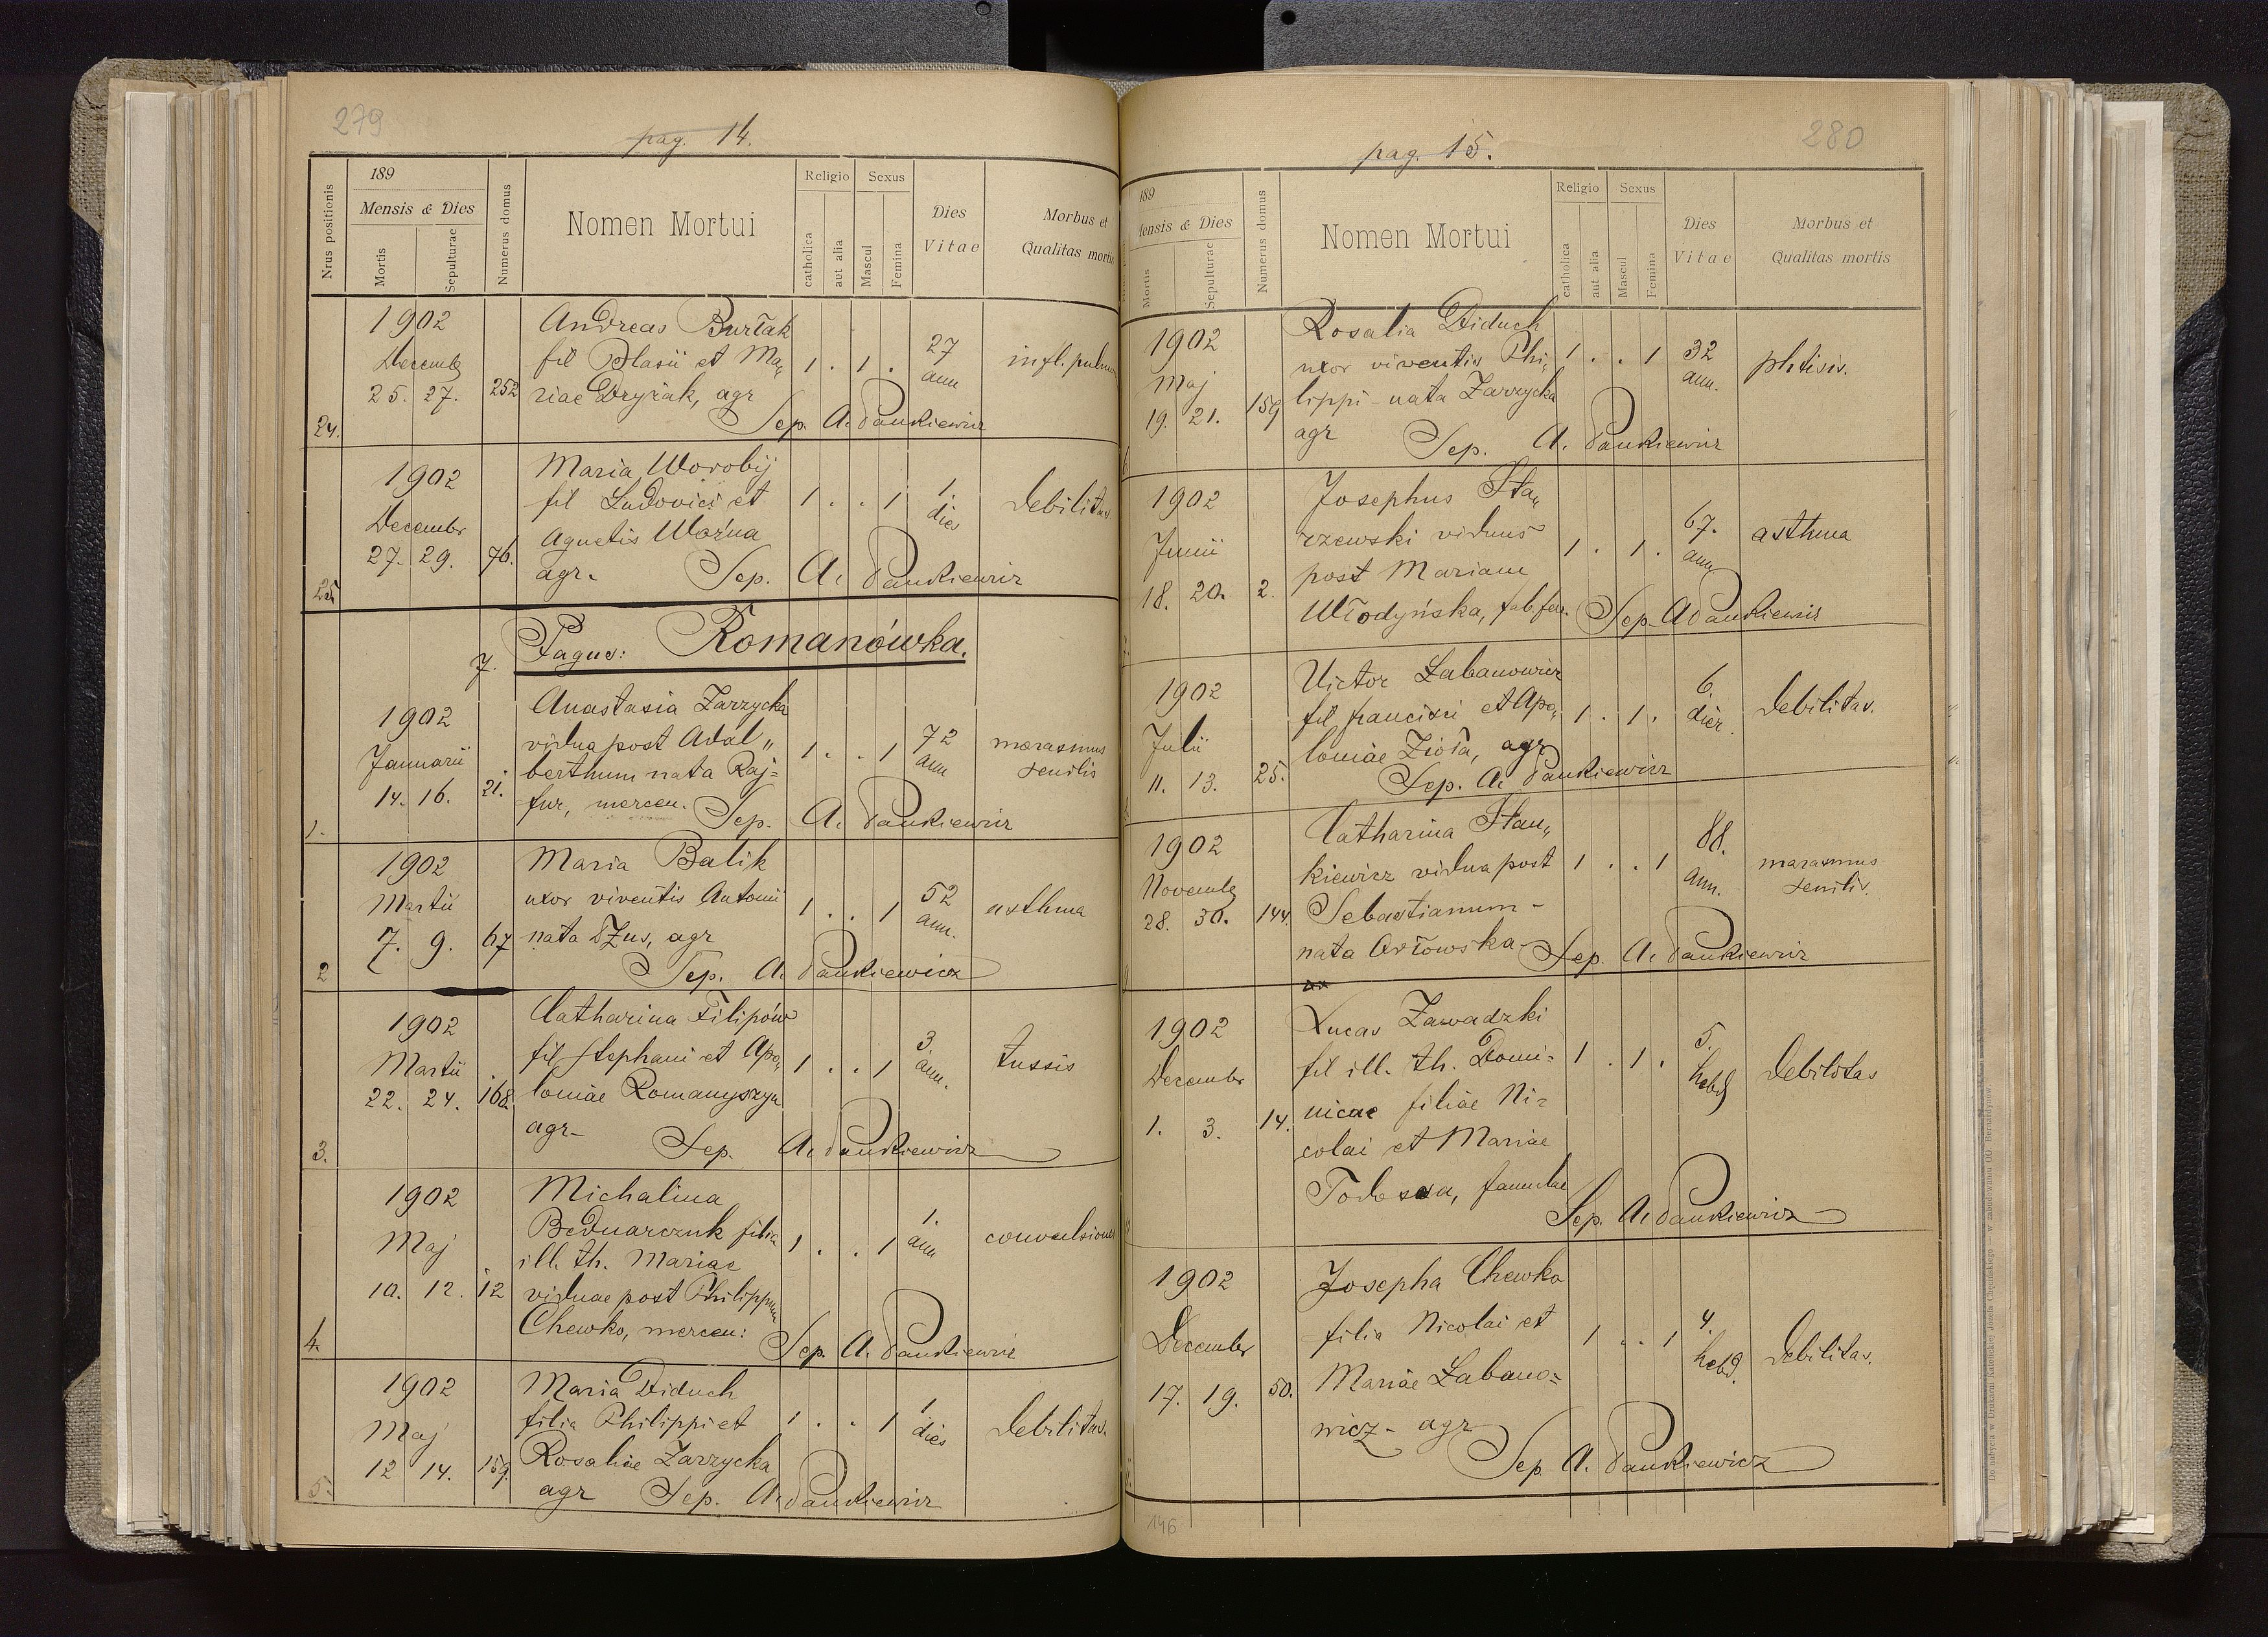 279
pag. 14.
189
Nrus positionis
Mensis & Dies
Mortis
Sepulturae
Numerus domus
Nomen Mortui
Religio
catholica
aut alia
Sexus
Mascul
Femina
Dies
Vitae
Morbus et
Qualitas mortis
1902
Decemb
25. 27. 252
24.
Andreas Burłak
fil Blasii et Ma„
riae Dryżak, agr
Sep. A. Pankiewicz
1 . 1 .
27
ann
infl. pulm
1902
Decembr
27. 29. 76.
25
Maria Worobij
fil Ludovici et
Agnetis Woźna
agr.
Sep. A. Pankiewicz
1 . . 1
1.
dies
debilitas
7.
Pagus: Romanówka.
1902
Januarii
14. 16. 21.
1.
Anastasia Zarzycka
vidua post Adal„
berthum nata Raj=
fur, mercen. Sep. A. Pankiewicz
1 . . 1
72
ann
marasmus
senilis
1902
Martii
7. 9. 67
2
Maria Balik
uxor viventis Antonii
nata Zus, agr
Sep. A. Pankiewicz
1 . . 1
52
ann.
asthma
1902
Martii
22. 24. 168.
3.
Catharina Filipów
fil Stephani et Apo„
loniae Romanyszyn
agr-
Sep. A. Pankiewicz
1 . . 1
3
ann.
tussis
1902
Maj
10. 12. 12
4.
Michalina
Bednarczuk filia
ill. th. Mariae
viduae post Philippum
Chewko, mercen:
Sep. A. Pankiewicz
1 . . 1
1.
ann
convulsiones
1902
Maj
12 14. 159.
5.
Maria Diduch
filia Philippi et
Rosaliae Zarzycka
agr Sep. A. Pankiewicz
1 . . 1
1
dies
debilitas.
280
pag. 15.
189
Mensis & Dies
Mortis
Sepulturae
Numerus domus
Nomen Mortui
Religio
catholica
aut alia
Sexus
Mascul
Femina
Dies
Vitae
Morbus et
Qualitas mortis
1902
Maj
19. 21. 159
Rosalia Diduch
uxor viventis Phi„
lippi - nata Zarzycka
agr Sep. A. Pankiewicz
1 . . 1
32
ann.
phtisis.
1902
Junii
18. 20. 2.
Josephus Sta„
rzewski viduus
post Mariam
Włodyńska, fab. fer. Sep. A Pankiewicz
1 . 1 .
67.
ann
asthma
1902
Julii
11. 13. 25.
Victor Labanowicz
fil francisci et Apo„
loniae Zioła, agr
Sep. A. Pankiewicz
1 . 1 .
6.
dier.
debilitas.
1902
Novemb
28. 30. 144.
Catharina Stan„
kiewicz vidua post
Sebastianum -
nata Orłowska - Sep. A. Pankiewicz
1 . . 1
88.
ann.
marasmus
senilis.
1902
Decembr
1. 3. 14.
Lucas Zawadzki
fil ill. th. Domi=
nicae filiae Ni=
colai et Mariae
famulae
Sep. A. Pankiewicz
1 . 1 .
5.
hebd
debilitas
1902
December
17. 19. 50.
Josepha Chewko
filia Nicolai et
Mariae Labano=
wicz - agr
Sep. A. Pankiewicz
1 . . 1
4.
hebd.
debilitas.
146